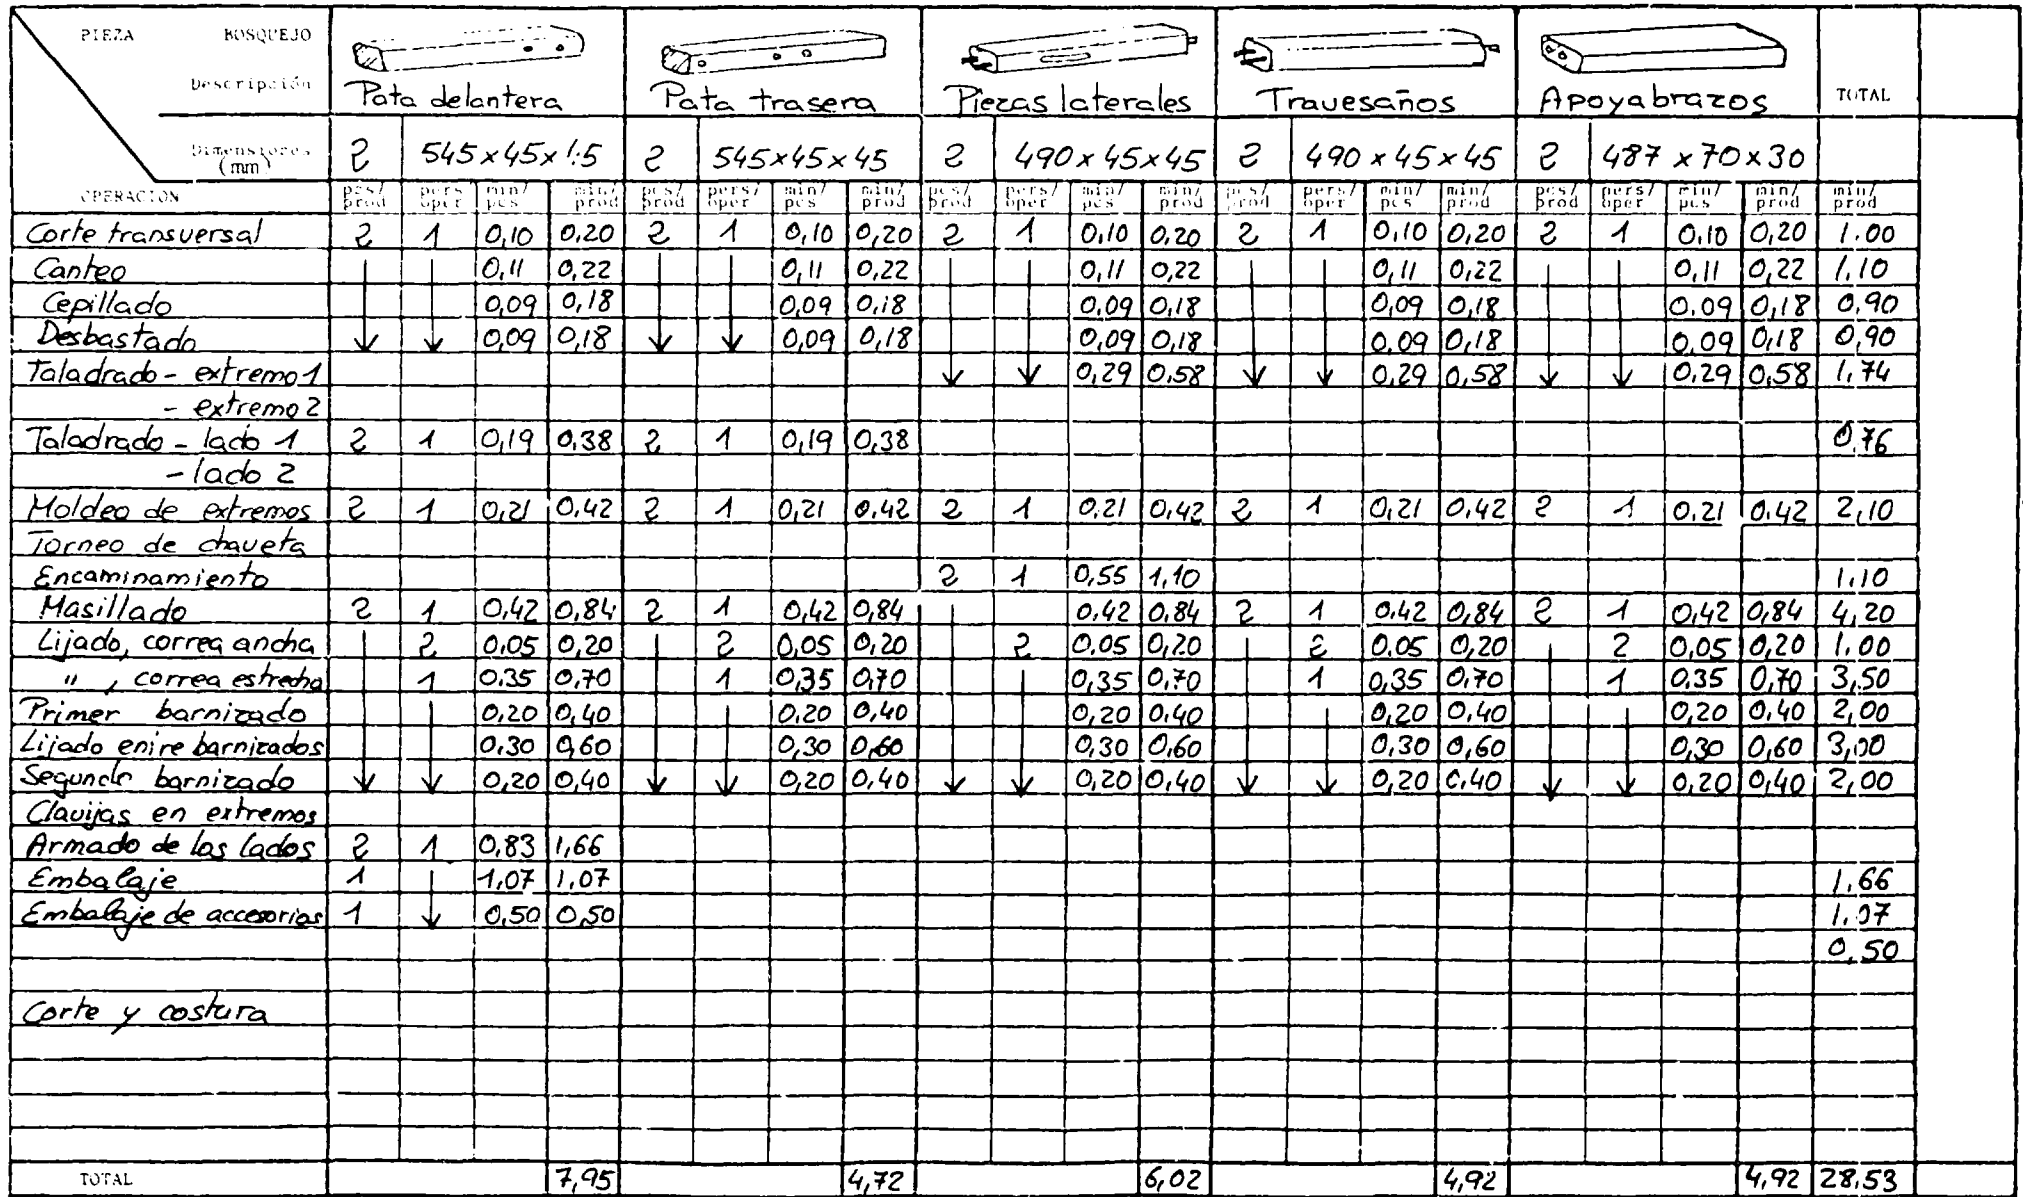 PIEZA BOSQUEJO
Descripción
Pata delantera Pata trasera Piezas laterales Travesaños Apoyabrazos TOTAL
Dimensiones (mm) 2 545 x 45 x 2 545x45x45 2 490 x 45x45 2 490 x 45x45 2 487 x 70x30
OPERACION pcs/prod pers/oper min/pcs min/prod pcs/prod pers/oper min/pcs min/prod pcs/prod pers/oper min/pcs min/prod pcs/prod pers/oper min/pcs min/prod pcs/prod pers/oper min/pcs min/prod min/prod
Corte transversal 2 1 0,10 0,20 2 1 0,10 0,20 2 1 0,10 0,20 2 1 0,10 0,20 2 1 0,10 0,20 1.00
Canteo 0,11 0,22 0,11 0,22 0,11 0,22 0,11 0,22 0,11 0,22 1,10
Cepillado 0,09 0,18 0,09 0,18 0,09 0,18 0,09 0,18 0,09 0,18 0,90
Desbastado 0,09 0,18 0,09 0,18 0,09 0,18 0,09 0,18 0,09 0,18 0,90
Taladrado - extremo 1 0,29 0,58 0,29 0,58 0,29 0,58 1,74
- extremo 2
Taladrado - lado 1 2 1 0,19 0,38 2 1 0,19 0,38 0,76
- lado 2
Moldeo de extremos 2 1 0,21 0,42 2 1 0,21 0,42 2 1 0,21 0,42 2 1 0,21 0,42 2 1 0,21 0,42 2,10
Torneo de chaveta
Encaminamiento 2 1 0,55 1,10 1,10
Masillado 2 1 0,42 0,84 2 1 0,42 0,84 0,42 0,84 2 1 0,42 0,84 2 1 0,42 0,84 4,20
Lijado, correa ancha 2 0,05 0,20 2 0,05 0,20 2 0,05 0,20 2 0,05 0,20 2 0,05 0,20 1,00
" , correa estrecha 1 0,35 0,70 1 0,35 0,70 0,35 0,70 1 0,35 0,70 1 0,35 0,70 3,50
Primer barnizado 0,20 0,40 0,20 0,40 0,20 0,40 0,20 0,40 0,20 0,40 2,00
Lijado entre barnizados 0,30 0,60 0,30 0,60 0,30 0,60 0,30 0,60 0,30 0,60 3,00
Segundo barnizado 0,20 0,40 0,20 0,40 0,20 0,40 0,20 0,40 0,20 0,40 2,00
Clavijas en extremos
Armado de los lados 2 1 0,83 1,66
Embalaje 1 1,07 1,07 1.66
Embalaje de accesorios 1 0,50 0,50 1.07
0,50
Corte y costura
TOTAL 7,95 4,72 6,02 4,92 4,92 28,53